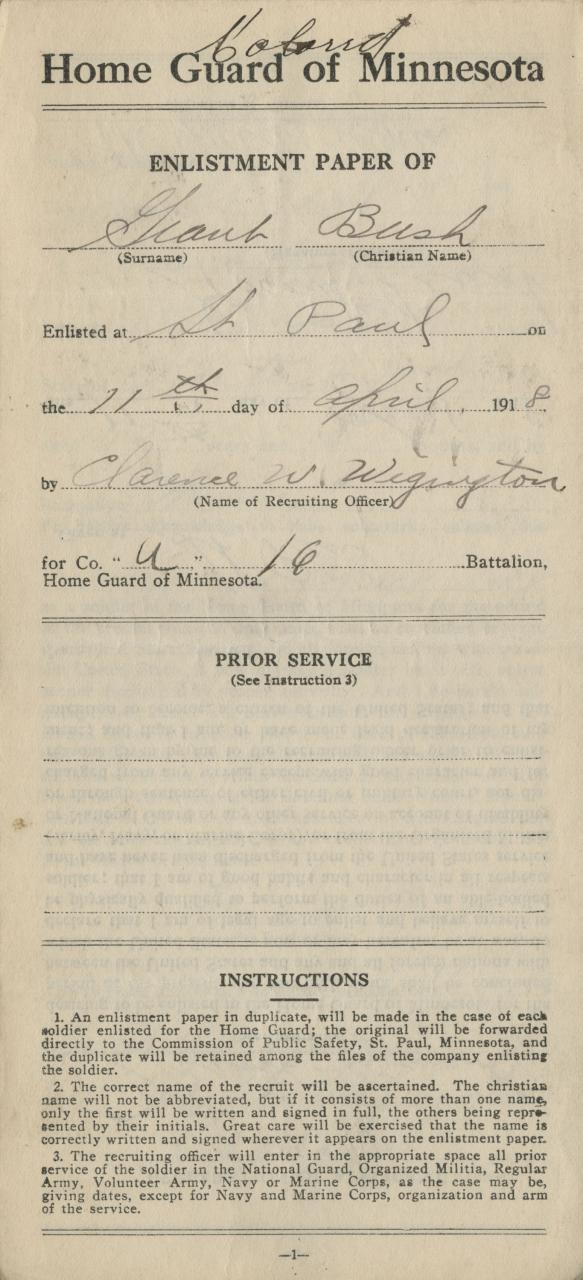 Colored
Home Guard of Minnesota
ENLISTMENT PAPER OF
Grant Bush
(Surname) (Christian Name)
Enlisted at St Paul on
the 11th day of April, 1918.
by Clarence W. Wigington
(Name of Recruiting Officer)
for Co. "A" 16 Battalion,
Home Guard of Minnesota.
PRIOR SERVICE
(See Instruction 3)
INSTRUCTIONS
1. An enlistment paper in duplicate, will be made in the case of each
soldier enlisted for the Home Guard; the original will be forwarded
directly to the Commission of Public Safety, St. Paul, Minnesota, and
the duplicate will be retained among the files of the company enlisting
the soldier.
2. The correct name of the recruit will be ascertained. The christian
name will not be abbreviated, but if it consists of more than one name,
only the first will be written and signed in full, the others being repre-
sented by their initials. Great care will be exercised that the name is
correctly written and signed wherever it appears on the enlistment paper.
3. The recruiting officer will enter in the appropriate space all prior
service of the soldier in the National Guard, Organized Militia, Regular
Army, Volunteer Army, Navy or Marine Corps, as the case may be,
giving dates, except for Navy and Marine Corps, organization and arm
of the service.
—1—